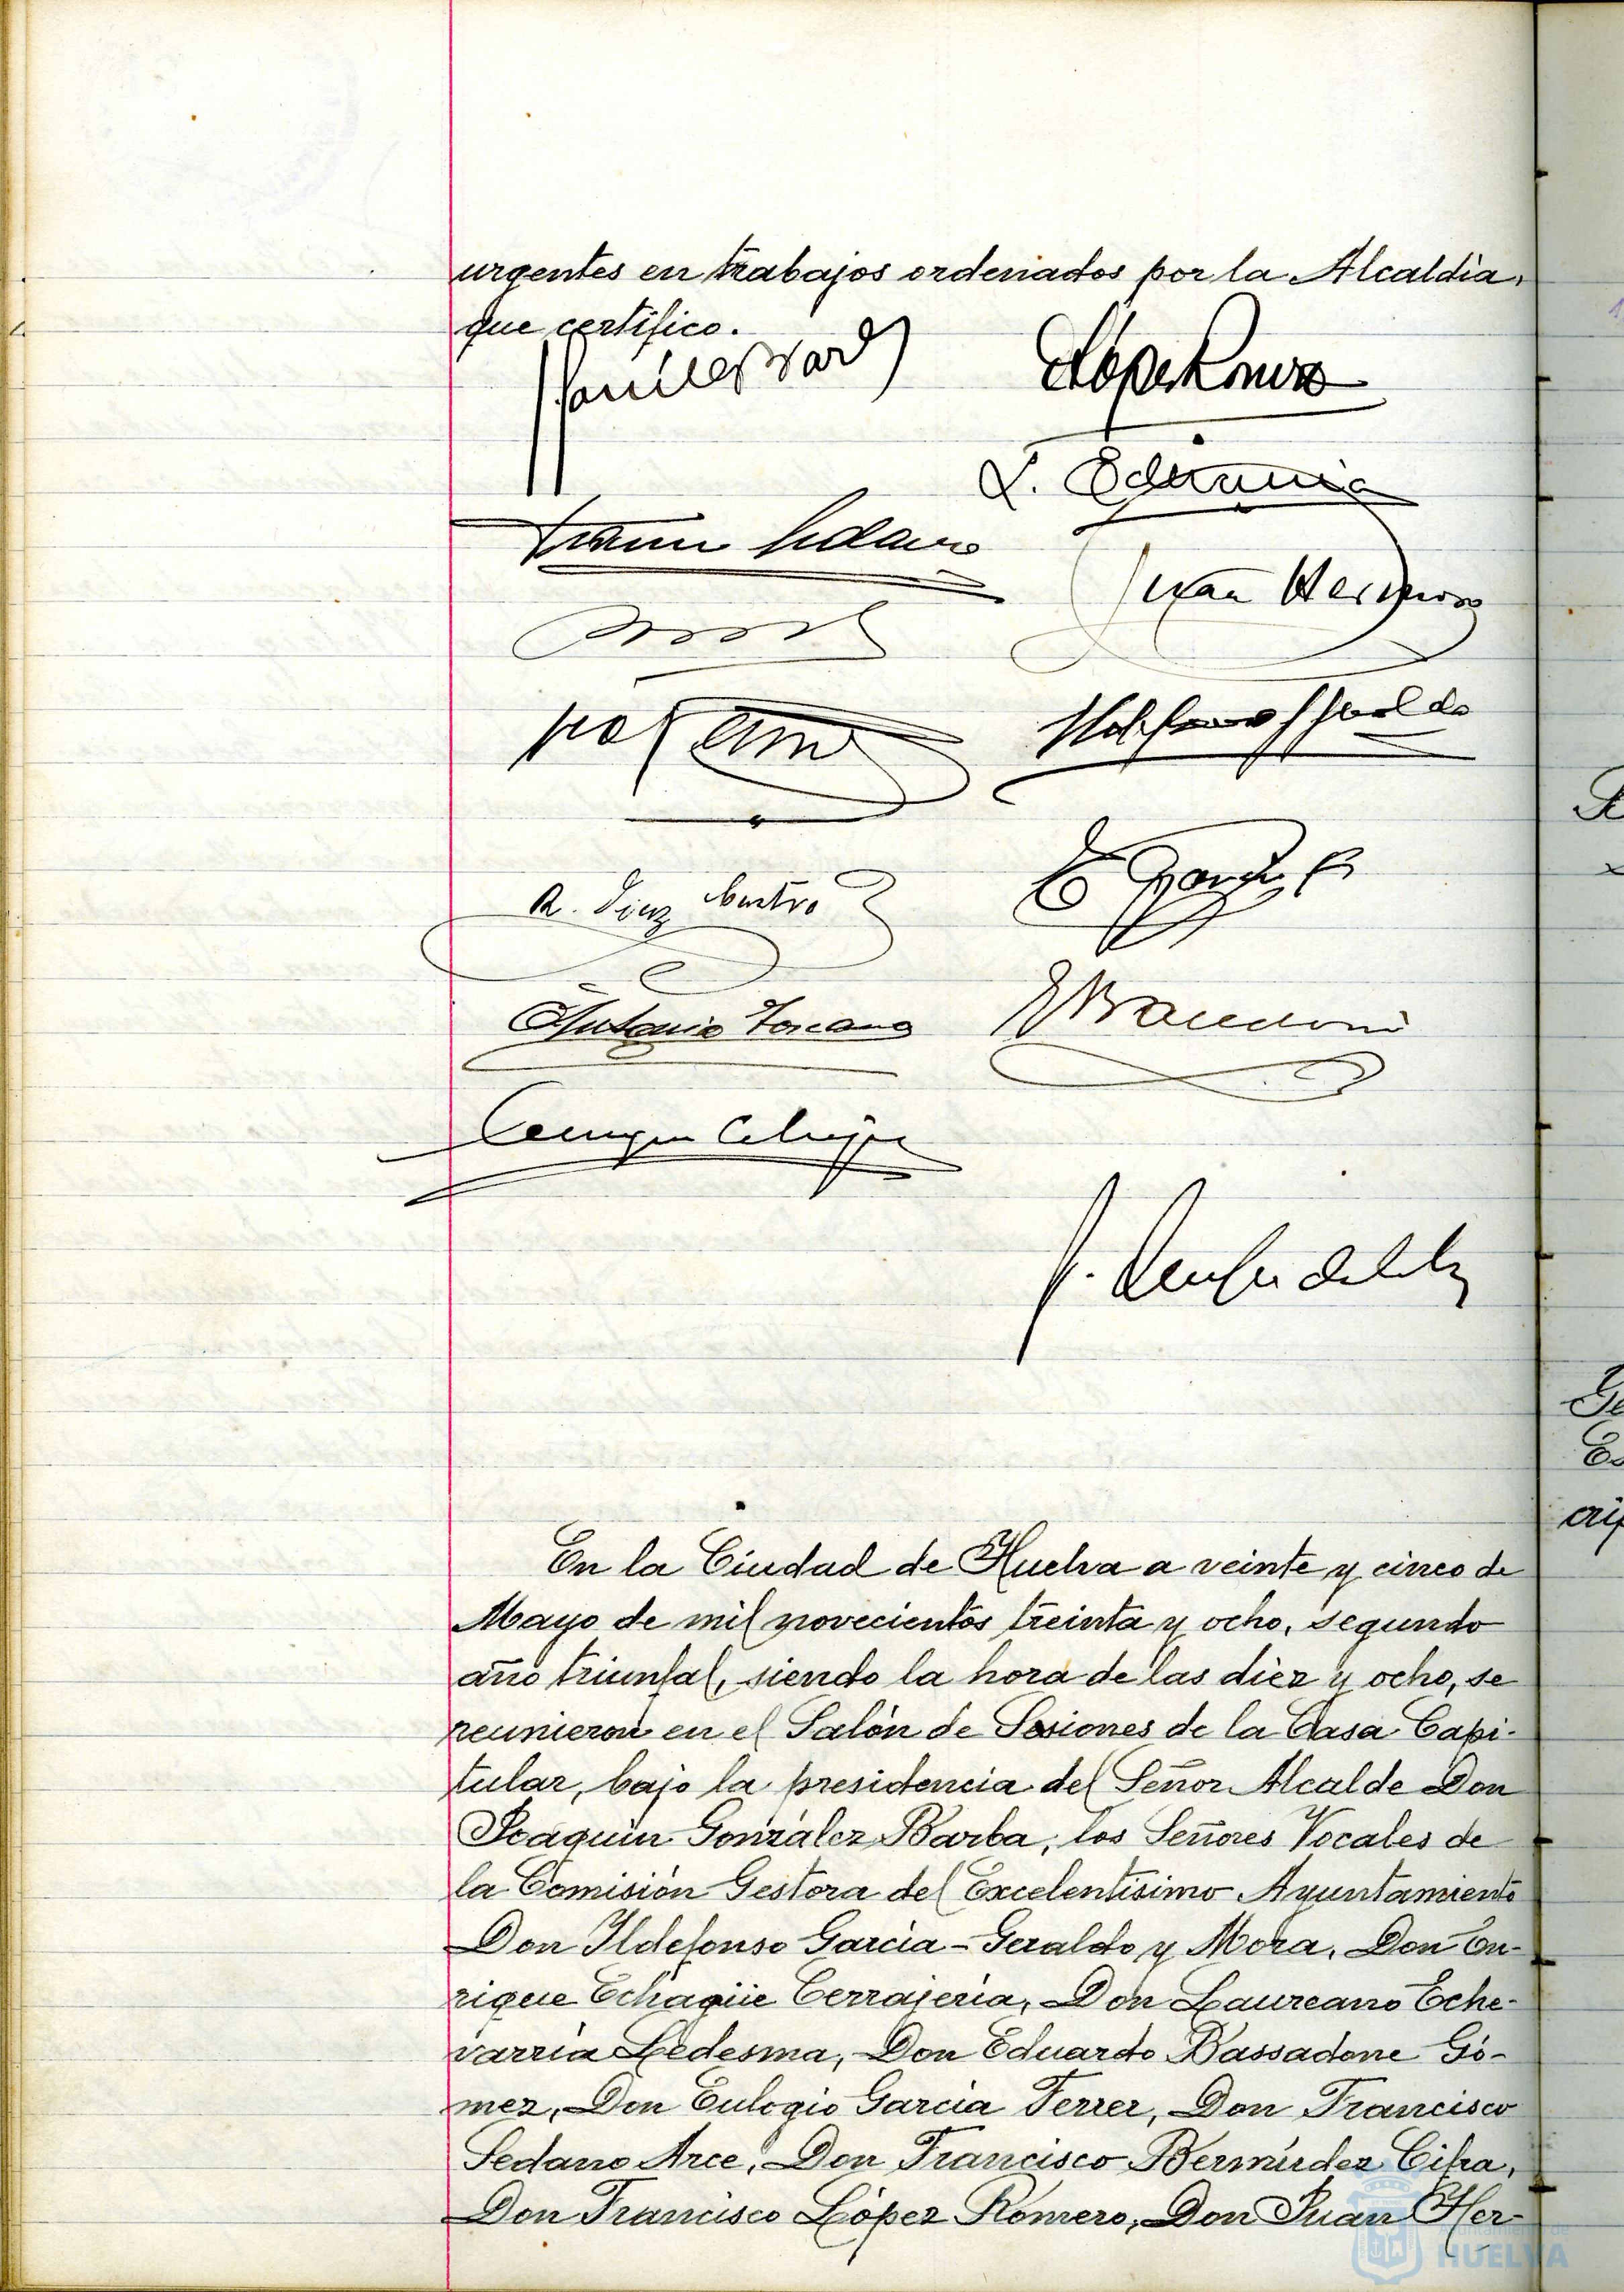 urgentes en trabajos ordenados por la Alcaldía,
que certifico.
L. Echevarria
Juan Her
R. Díaz Castro
Antonio Toscano
En la Ciudad de Huelva a veinte y cinco de
Mayo de mil novecientos treinta y ocho, segundo
año triunfal, siendo la hora de las diez y ocho, se
reunieron en el Salón de Sesiones de la Casa Capi-
tular, bajo la presidencia del Señor Alcalde Don
Joaquín González Barba, los Señores Vocales de
la Comisión Gestora del Excelentísimo Ayuntamiento
Don Ildefonso García-Geraldo y Mora, Don En-
rique Echagüe Cerrajería, Don Laureano Eche-
varría Ledesma, Don Eduardo Bassadone Gó-
mez, Don Eulogio García Ferrer, Don Francisco
Sedano Arce, Don Francisco Bermúdez Cifra,
Don Francisco López Romero, Don Juan Her-
Ayuntamiento de
HUELVA